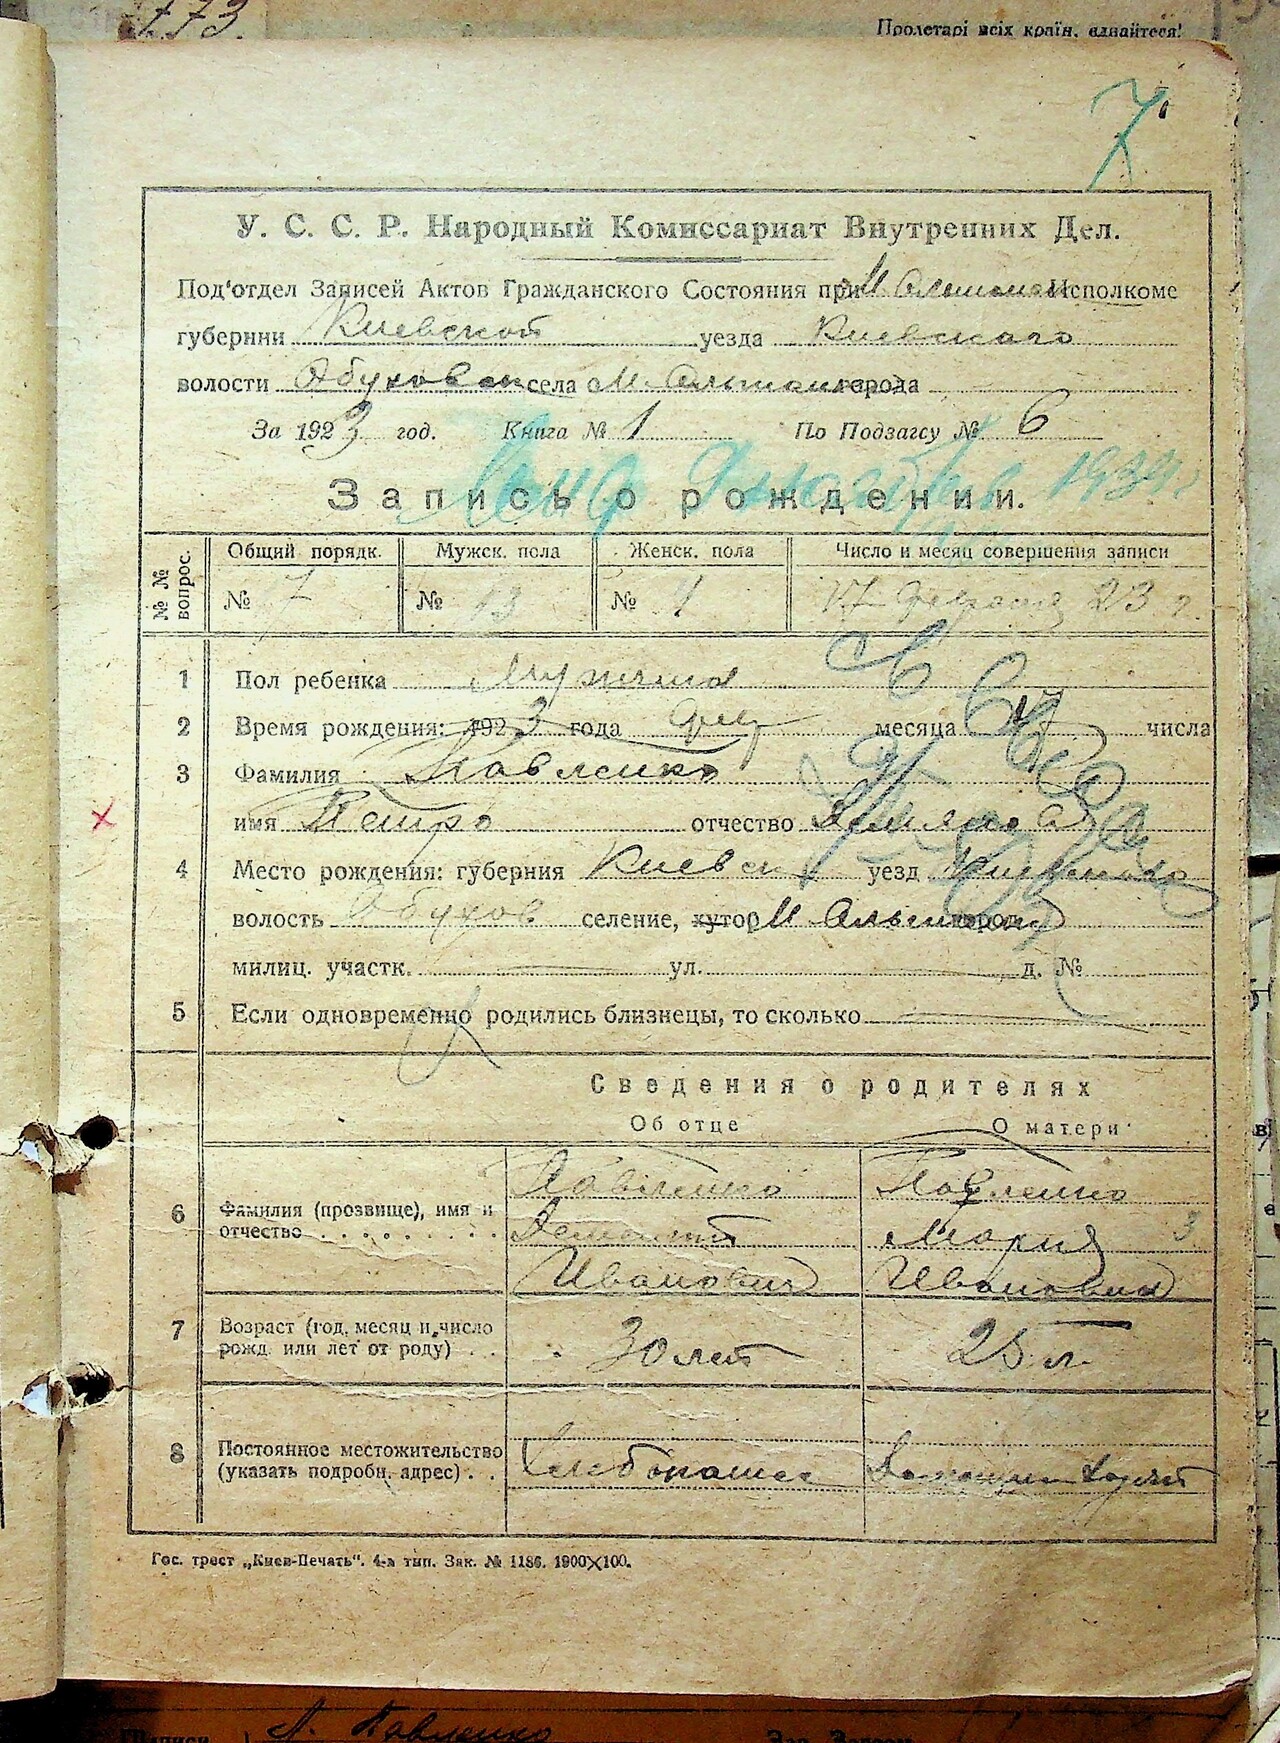 773.
Пролетарі всіх країн, єднайтеся!
7
У. С. С. Р. Народный Комиссариат Внутренних Дел.
Под'отдел Записей Актов Гражданского Состояния при М. Ольшанск Исполкоме
губернии Киевской уезда Киевского
волости Обуховск села М. Ольшанка города
За 1923 год. Книга № 1 По Подзагсу № 6
1934 г.
Запись о рождении.
№ № вопрос. Общий порядк. Мужск. пола Женск. пола Число и месяц совершения записи
№ 7 № 13 № 1 17 февраля 23 г.
1 Пол ребенка Мужчина
2 Время рождения: 1923 года фев месяца 17 числа
3 Фамилия Павленко
имя Петро отчество
4 Место рождения: губерния Киевск уезд Киевского
волость Обухов селение, хутор М Ольшанка город
милиц. участк. ул. д. №
5 Если одновременно родились близнецы, то сколько
Сведения о родителях
Об отце О матери
6 Фамилия (прозвище), имя и отчество Павленко Павленко
Мария 3
Иванович Ивановна
7 Возраст (год, месяц и число рожд. или лет от роду) 30 лет 25 л.
8 Постоянное местожительство (указать подробн. адрес) Хлебопашес
Гос. трест „Киев-Печать“. 4-я тип. Зак. № 1186. 1900X100.
Павленко